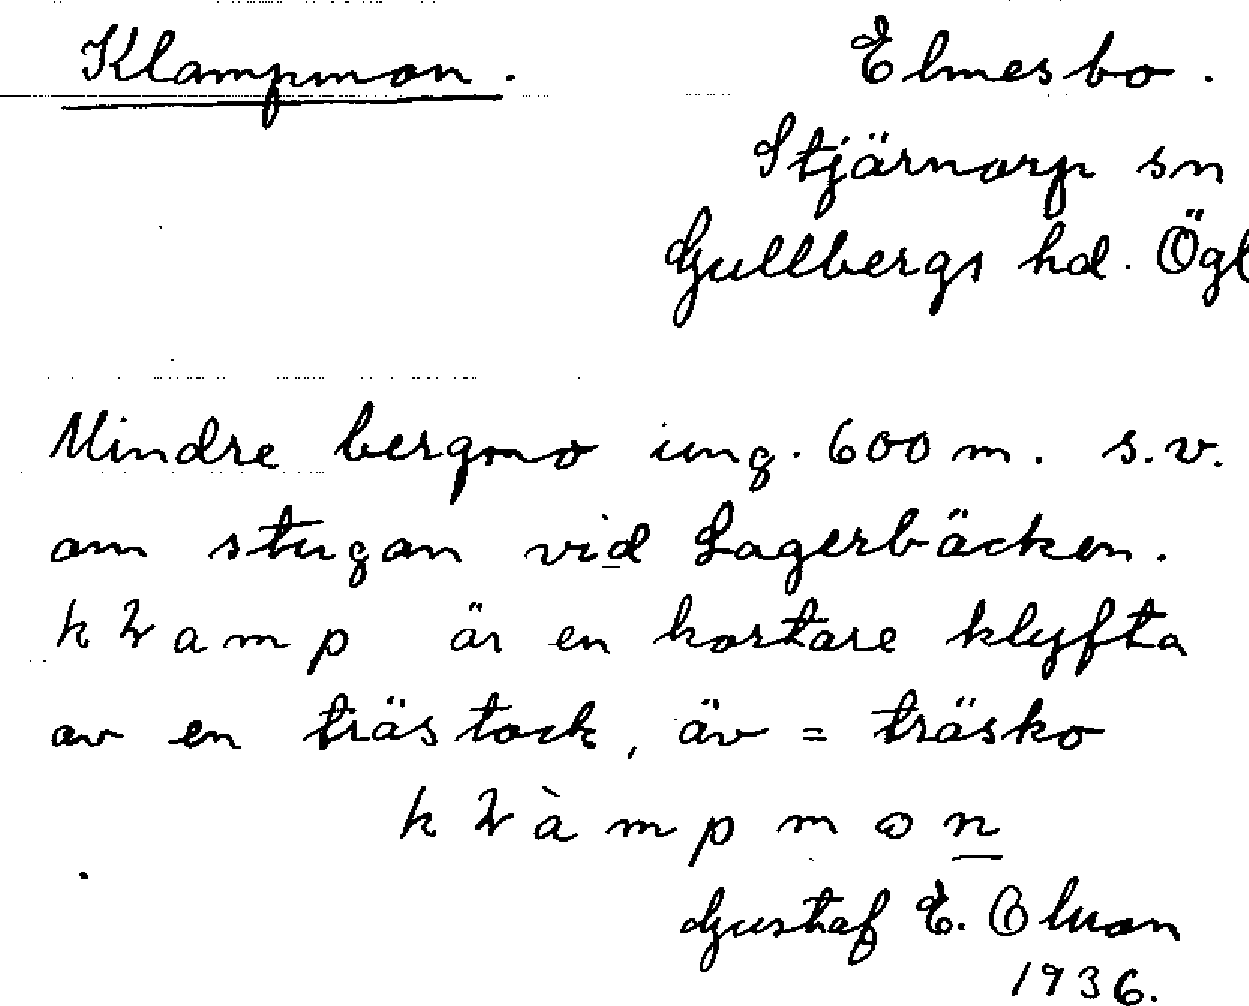 Klampmon. Elmesbo.
Stjärnorp sn
Gullbergs hd. Ögl
Mindre bergmo ung. 600 m. s.v.
om stugan vid Lagerbäcken.
är en kortare klyfta
av en trästock, äv = träsko
Gustaf E. Olson
1936.